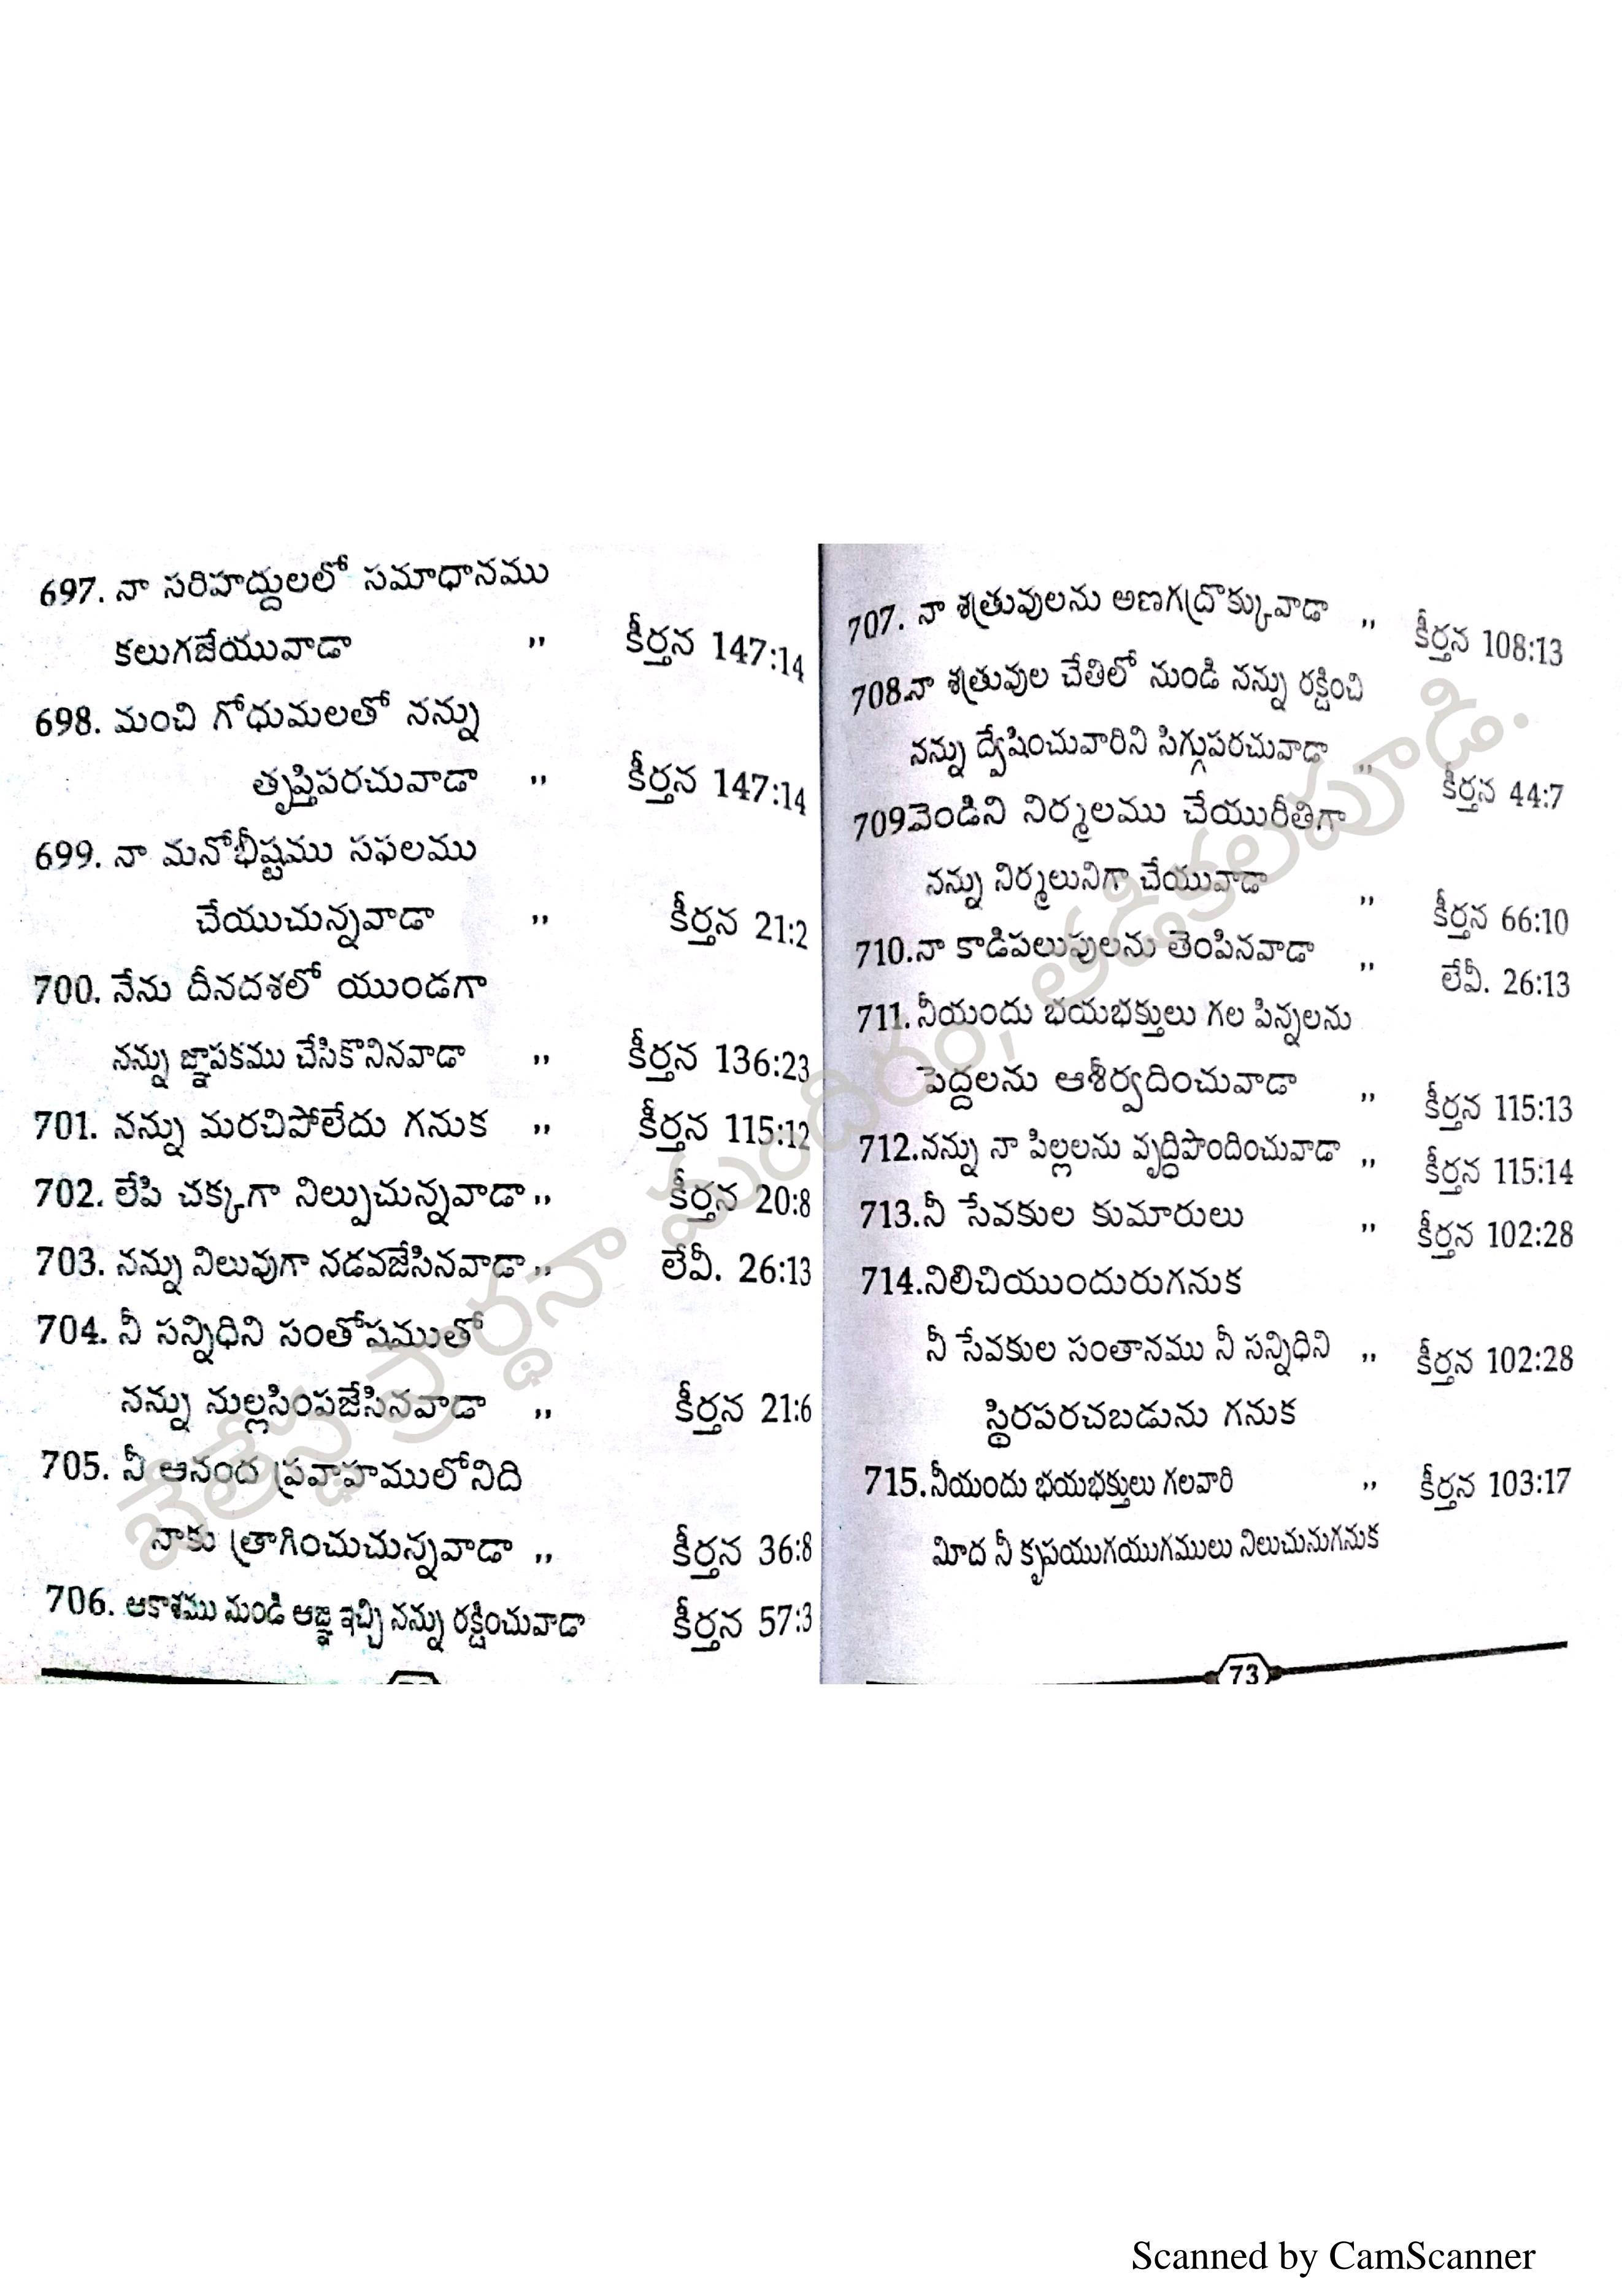 697. నా సరిహద్దులలో సమాధానము
కలుగజేయువాడా ,, కీర్తన 147:14
698. మంచి గోధుమలతో నన్ను
తృప్తిపరచువాడా ,, కీర్తన 147:14
699. నా మనోభీష్టము సఫలము
చేయుచున్నవాడా ,, కీర్తన 21:2
700. నేను దీనదశలో యుండగా
నన్ను జ్ఞాపకము చేసికొనినవాడా ,, కీర్తన 136:23
701. నన్ను మరచిపోలేదు గనుక ,, కీర్తన 115:12
702. లేపి చక్కగా నిల్పుచున్నవాడా ,, కీర్తన 20:8
703. నన్ను నిలువుగా నడవజేసినవాడా ,, లేవీ. 26:13
704. నీ సన్నిధిని సంతోషముతో
నన్ను నుల్లసింపజేసినవాడా ,, కీర్తన 21:6
705. నీ ఆనంద ప్రవాహములోనిది
నాకు త్రాగించుచున్నవాడా ,, కీర్తన 36:8
706. ఆకాశము నుండి ఆజ్ఞ ఇచ్చి నన్ను రక్షించువాడా కీర్తన 57:3
707. నా శత్రువులను అణగద్రొక్కువాడా ,, కీర్తన 108:13
708.నా శత్రువుల చేతిలో నుండి నన్ను రక్షించి
నన్ను ద్వేషించువారిని సిగ్గుపరచువాడా ,, కీర్తన 44:7
709వెండిని నిర్మలము చేయురీతిగా
నన్ను నిర్మలునిగా చేయువాడా ,, కీర్తన 66:10
710.నా కాడిపలుపులను తెంపినవాడా ,, లేవీ. 26:13
711. నీయందు భయభక్తులు గల పిన్నలను
పెద్దలను ఆశీర్వదించువాడా ,, కీర్తన 115:13
712.నన్ను నా పిల్లలను వృద్ధిపొందించువాడా ,, కీర్తన 115:14
713.నీ సేవకుల కుమారులు ,, కీర్తన 102:28
714.నిలిచియుందురుగనుక
నీ సేవకుల సంతానము నీ సన్నిధిని ,, కీర్తన 102:28
స్థిరపరచబడును గనుక
715.నీయందు భయభక్తులు గలవారి ,, కీర్తన 103:17
మీద నీ కృపయుగయుగములు నిలుచునుగనుక
73
బేతేస్థ ప్రార్థనా మందిరం, తడికలపూడి.
Scanned by CamScanner